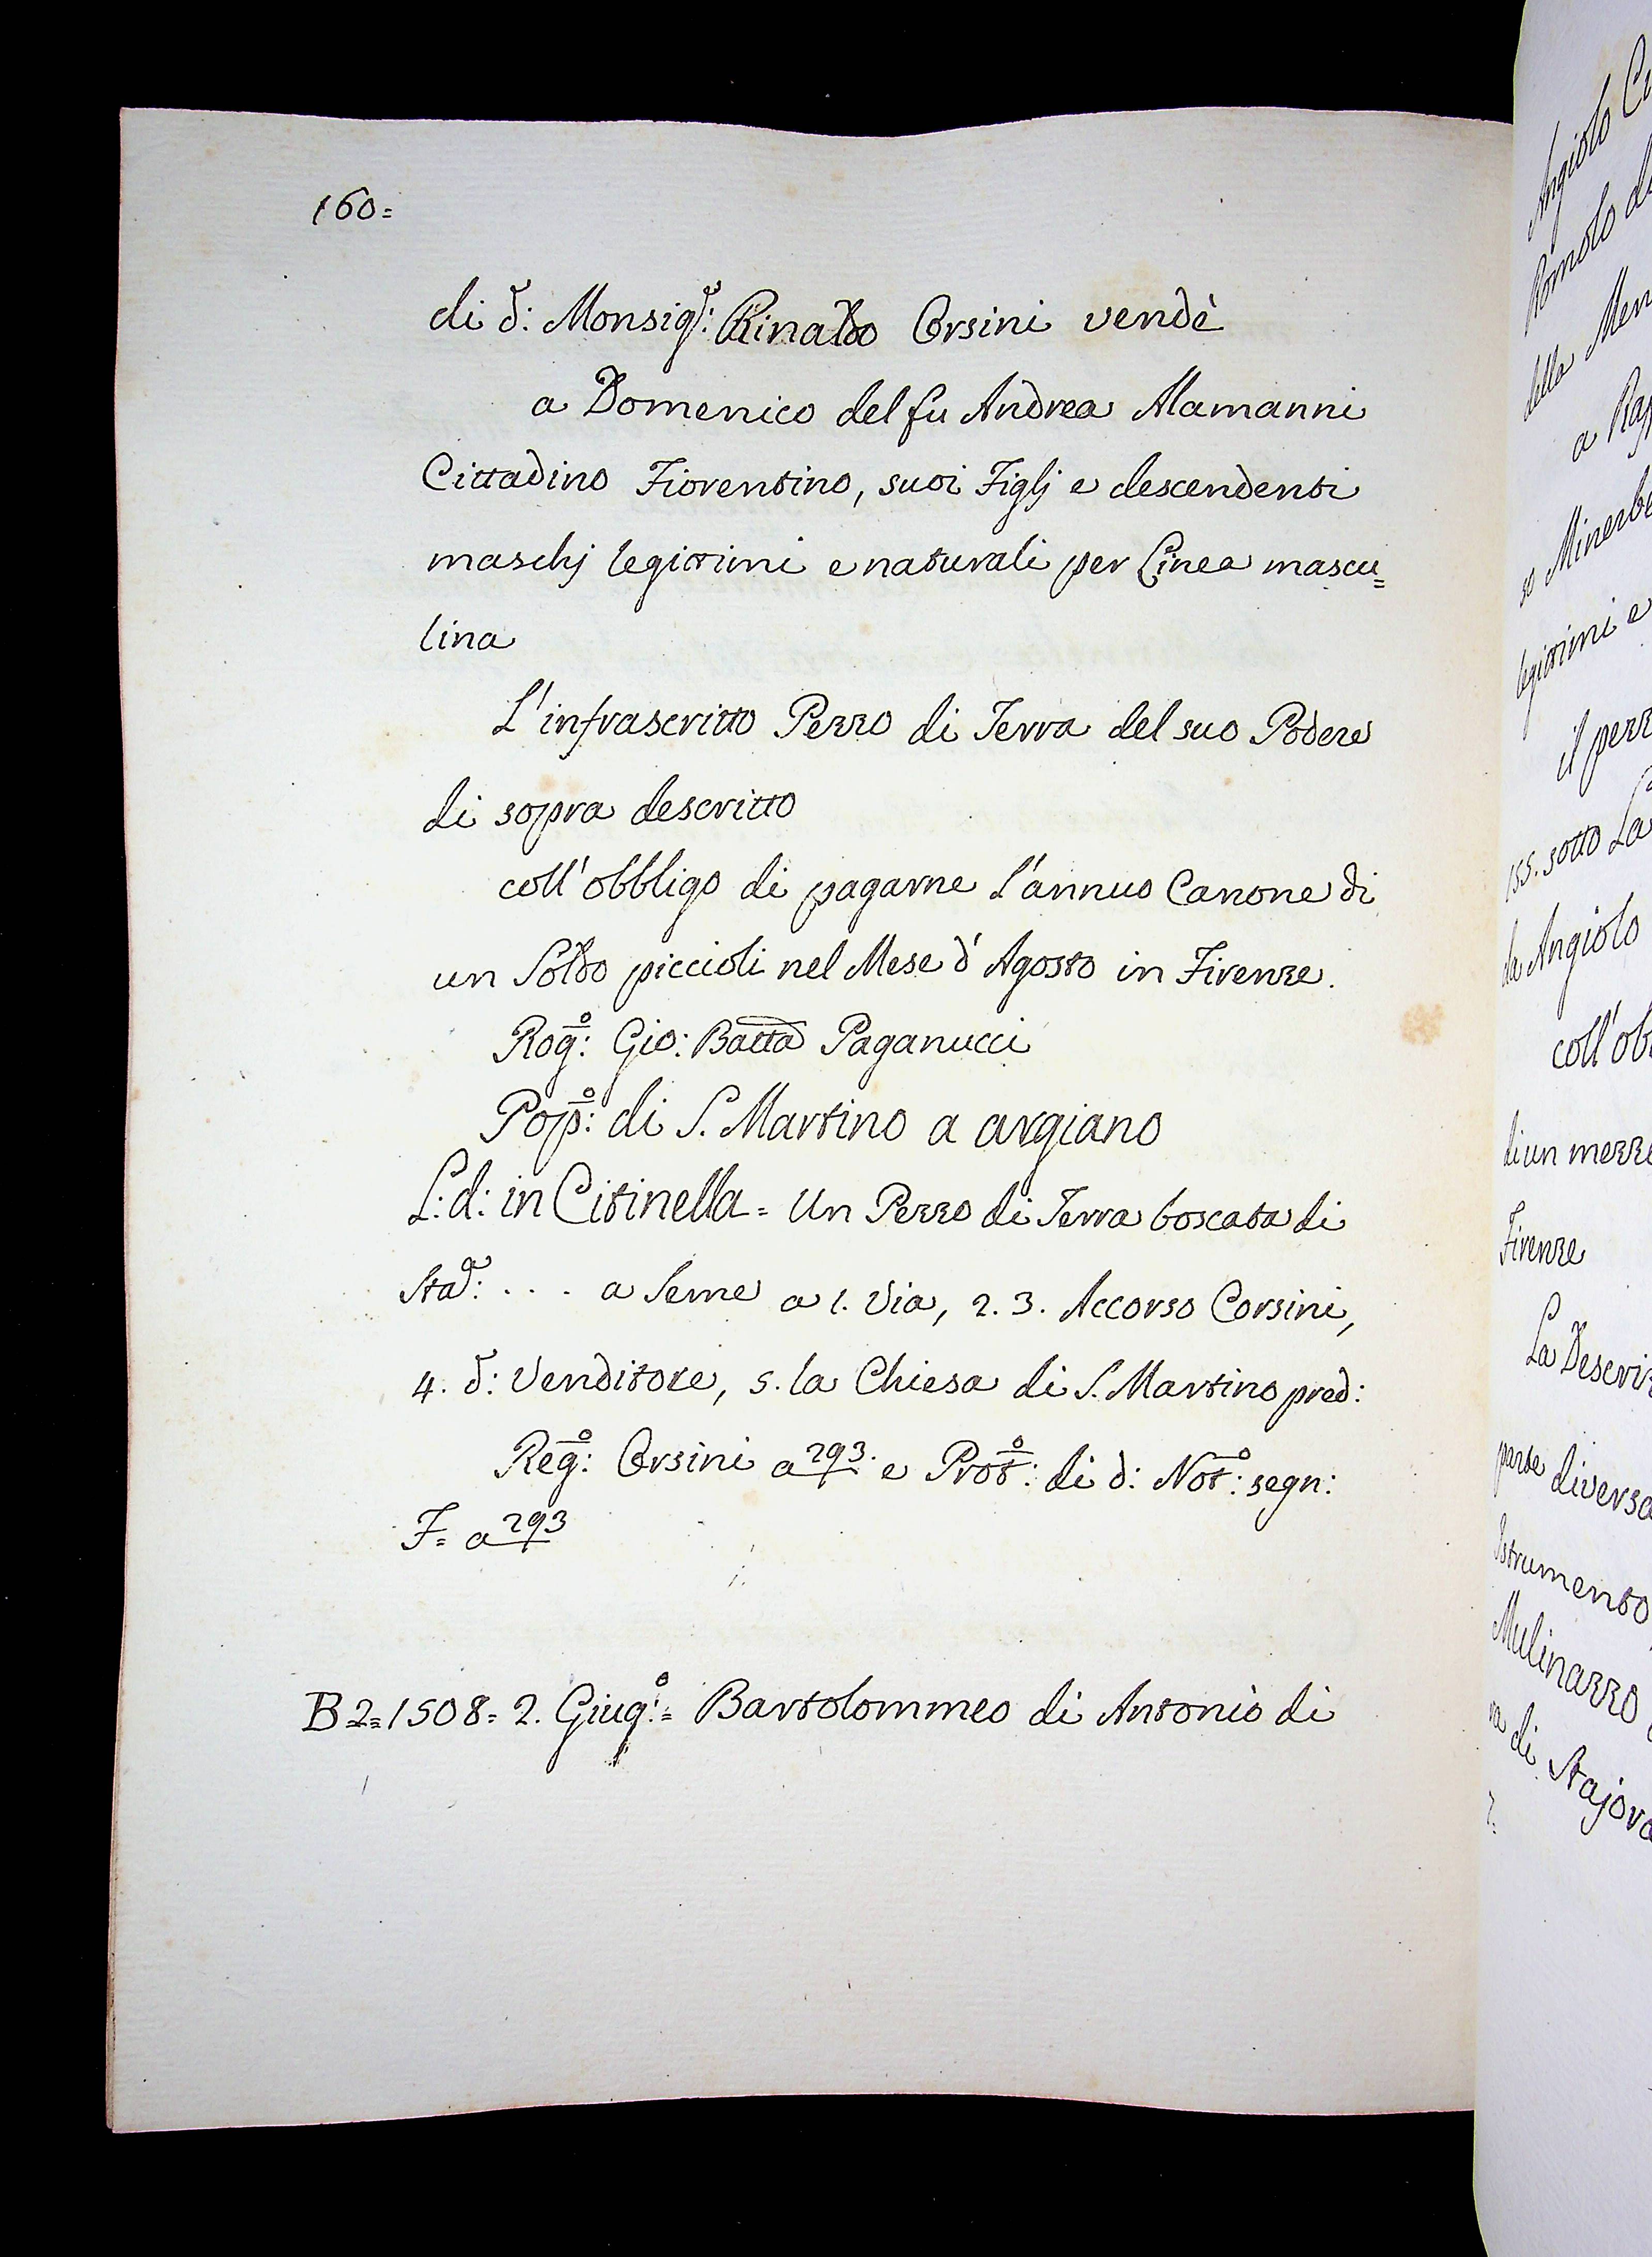 160=
di d: Monsig.r: Rinaldo Orsini vendè
a Domenico del fu Andrea Alamanni
Cittadino Fiorentino, suoi Figlj e descendenti
maschj legittimi e naturali per Linea mascu=
lina
L'infrascritto Pezzo di Terra del suo Podere
di sopra descritto
coll'obbligo di pagarne l'annuo Canone di
un Soldo piccioli nel Mese d'Agosto in Firenze.
Rog.o: Gio: Batta Paganucci
Pop.o: di S. Martino a argiano
L: d: in Citinella = Un Pezzo di Terra boscata di
Sta.a: . . . a Seme a 1. Via, 2. 3. Accorso Corsini,
4. d: Venditore, 5. la Chiesa di S. Martino pred:
Reg.o: Orsini a 293. e Prot.o: di d: Not.o: segn:
F= a 293
B2=1508= 2. Giug.o:= Bartolommeo di Antonio di
Angiolo
Romolo
della
a
Minerbe
legittimi e
il
155. sotto La
da Angiolo
coll'ob
di un
Firenze
La
parte
Istrumento
Mulinazzo
di